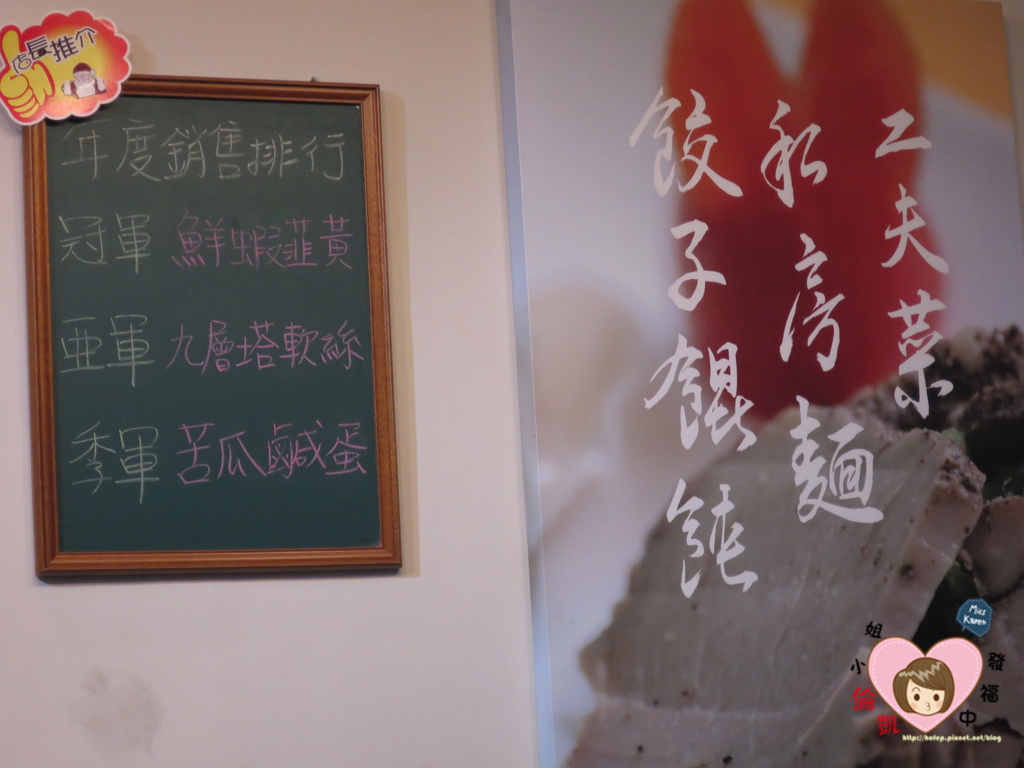 店長推介
年度銷售排行
冠軍 鮮蝦韮黃
亜軍 九層塔軟絲
季軍 苦瓜鹹蛋
工夫菜
私房麵
餃子餛飩
Miss Karen
小姐
偷凱
發福中
http://bafep.pixnet.net/blog